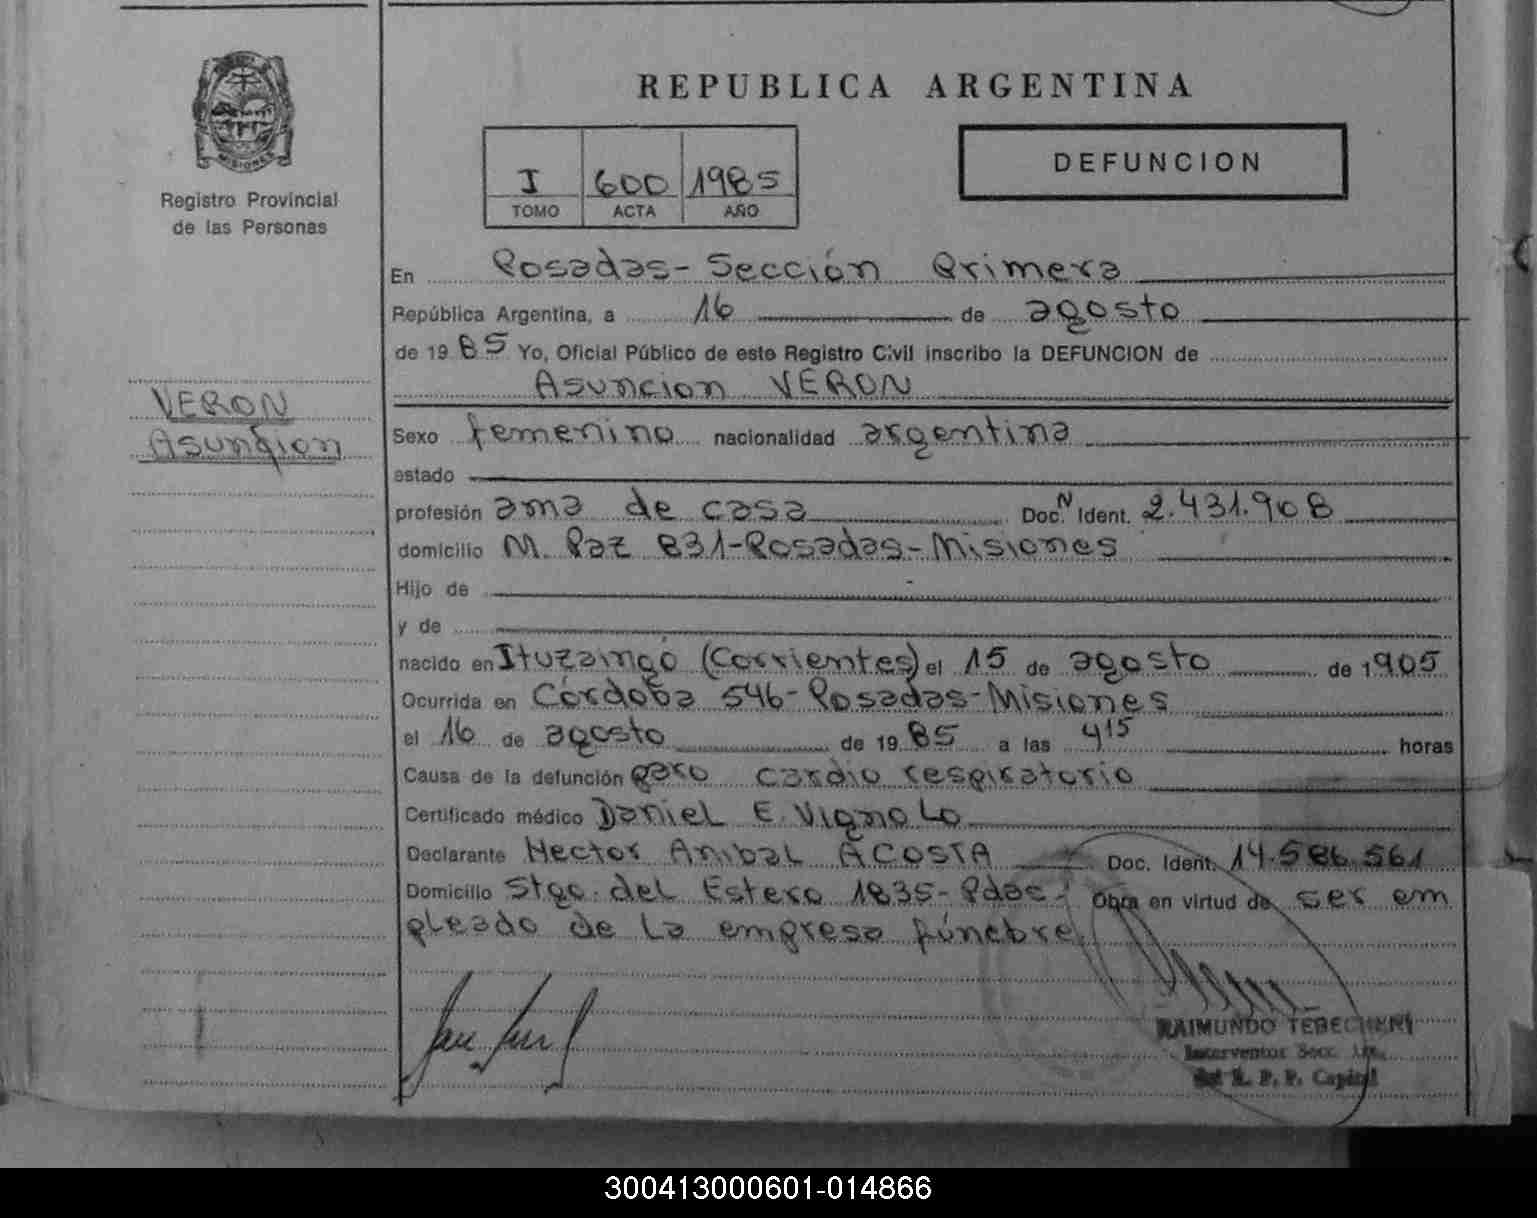 REPUBLICA ARGENTINA
MISIONES
Registro Provincial
de las Personas
I 600 1985
TOMO ACTA AÑO
DEFUNCION
En Posadas - Sección Primera
República Argentina, a 16 de agosto
de 1985 Yo, Oficial Público de este Registro Civil inscribo la DEFUNCION de
Asuncion VERON
VERON
Asunción
Sexo femenino nacionalidad argentina
estado
profesión ama de casa Doc. N Ident. 2.431.908
domicilio M. Paz 831-Posadas-Misiones
Hijo de
y de
nacido en Ituzaingó (Corrientes) el 15 de agosto de 1905
Ocurrida en Córdoba 546-Posadas-Misiones
el 16 de agosto de 1985 a las 4 15 horas
Causa de la defunción paro cardio respiratorio
Certificado médico Daniel E. Vignolo
Declarante Hector Anibal ACOSTA Doc. Ident. 14.586.561
Domicilio Stgo. del Estero 1835-Pdas- Obra en virtud de ser em
pleado de la empresa fúnebre
RAIMUNDO TEBECHERI
Interventor Secc. 1ra.
del R. P. P. Capital
300413000601-014866